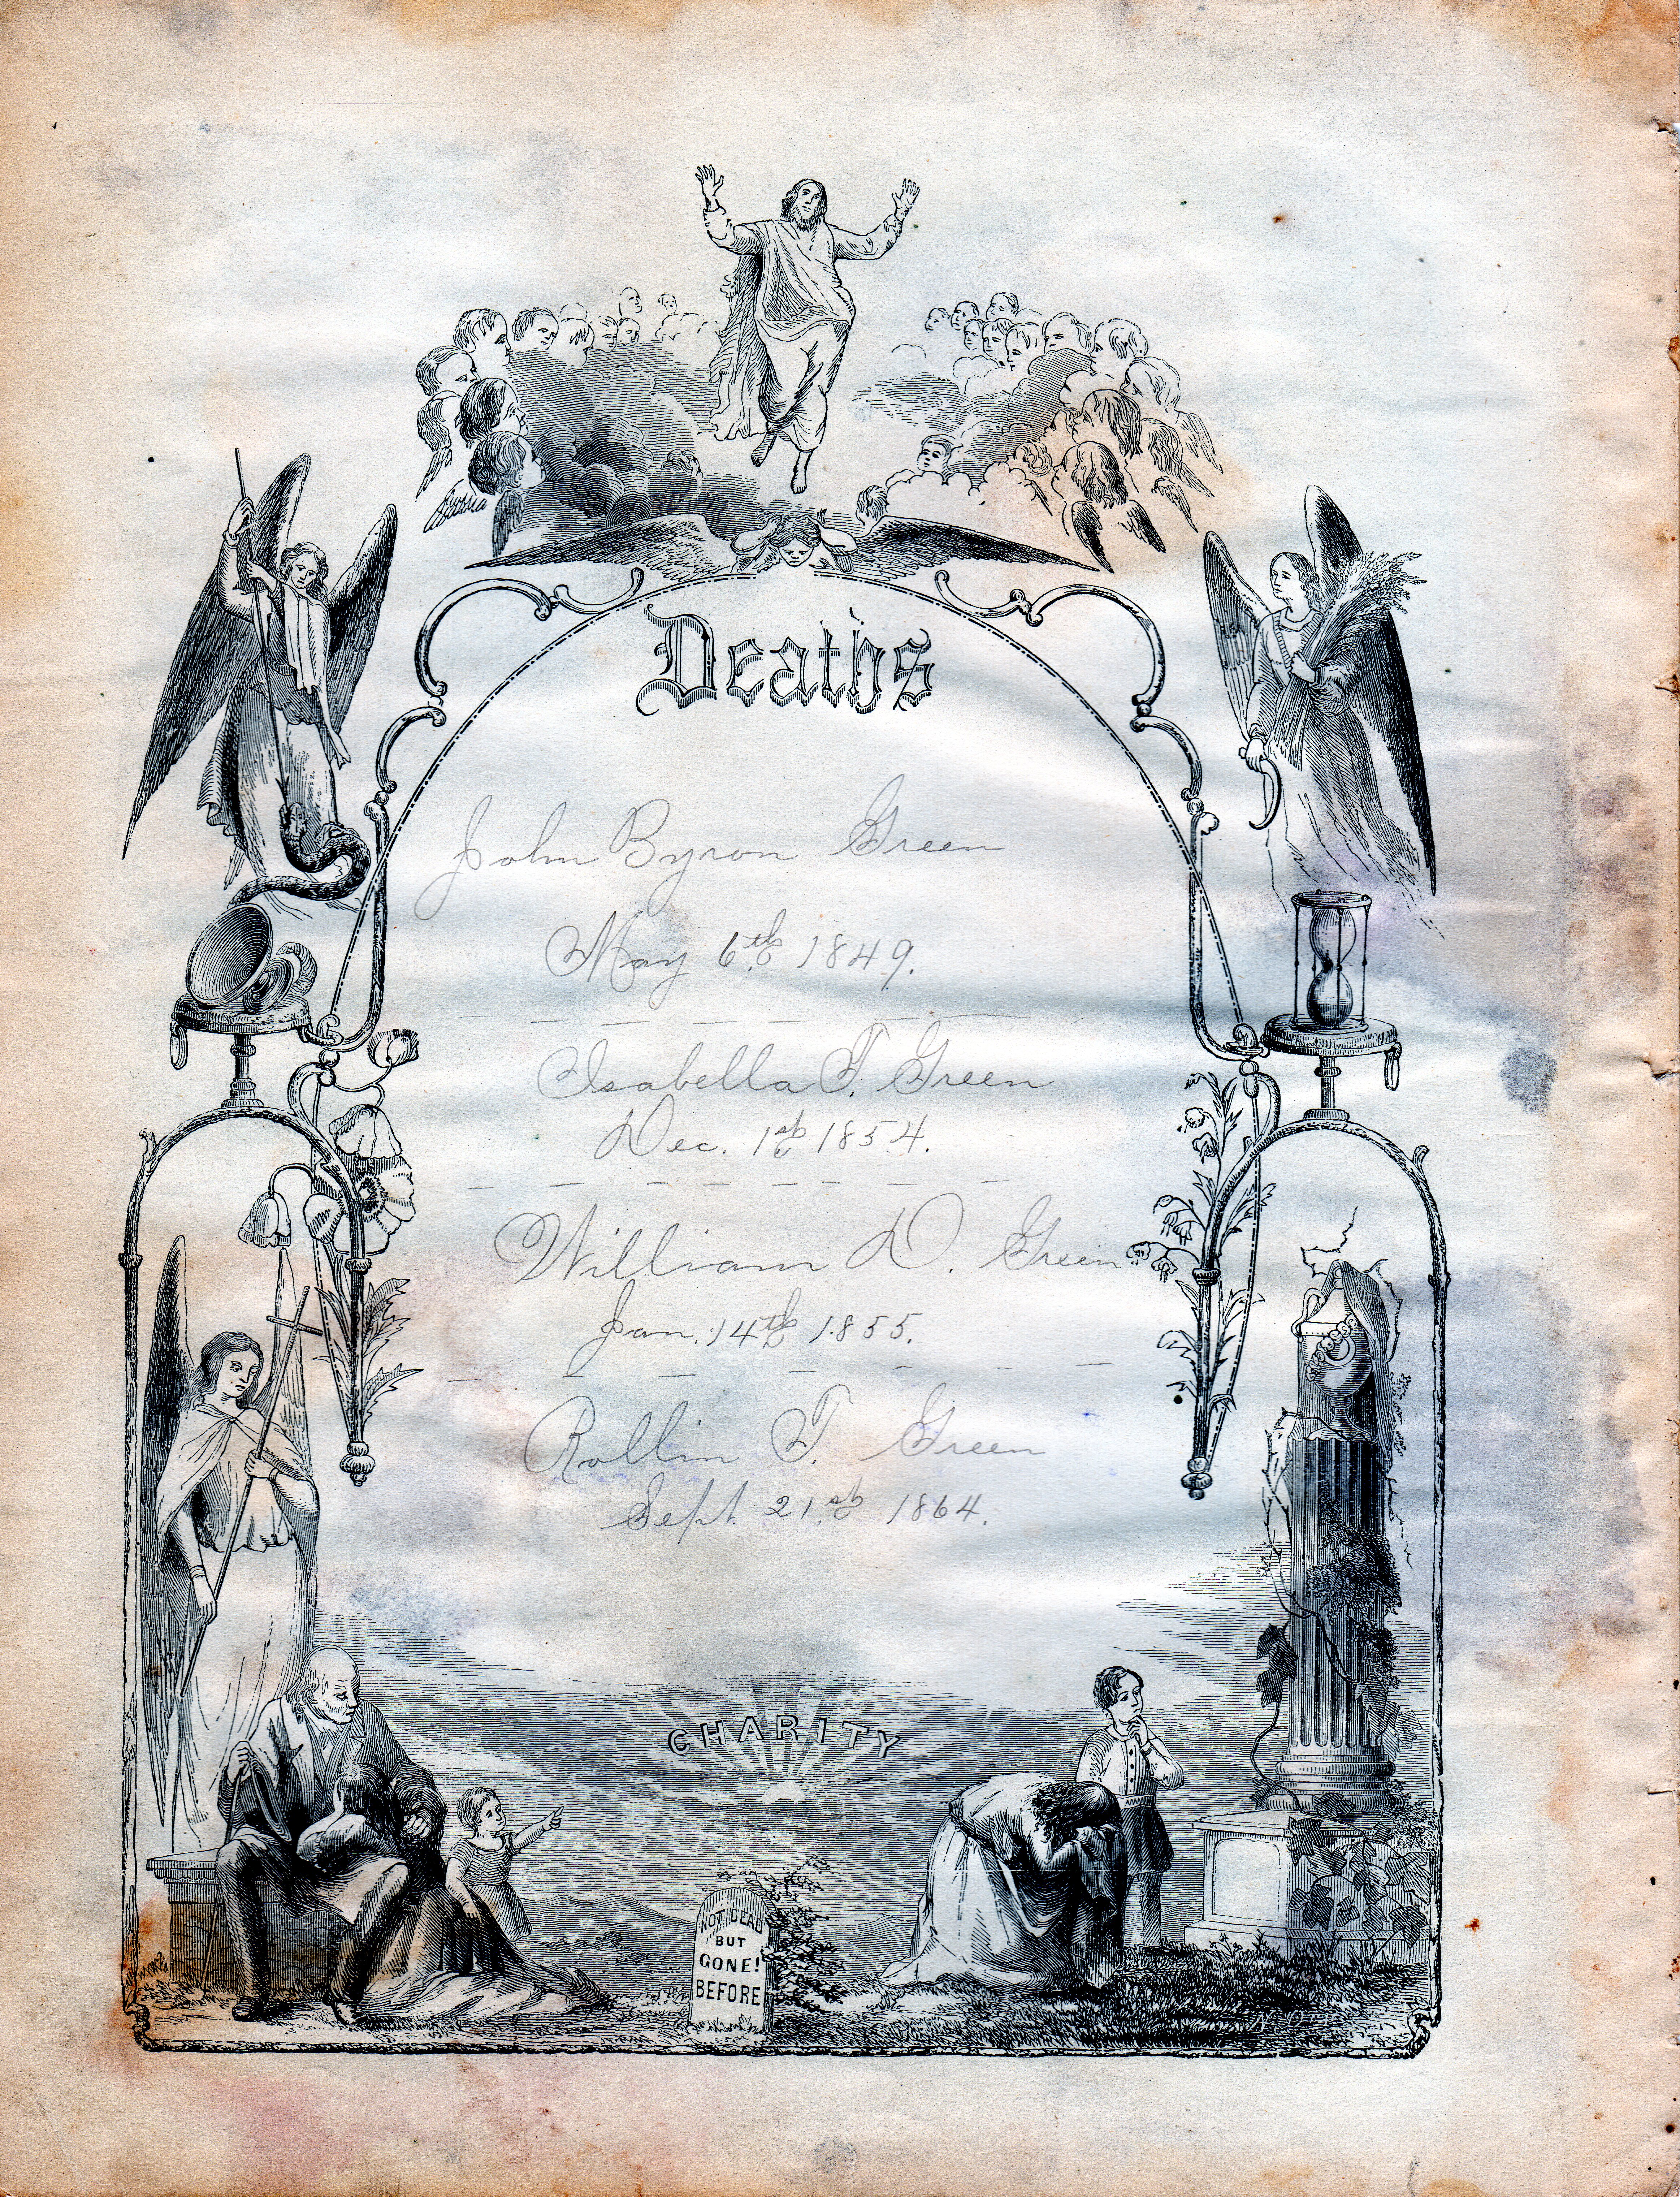 Deaths
John Byron Green
May 6th 1849.
Isabella T. Green
Dec. 1st 1854.
William D. Green
Jan. 14th 1855.
Rollin T. Green
Sept. 21st 1864.
CHARITY
NOT DEAD
BUT
GONE!
BEFORE